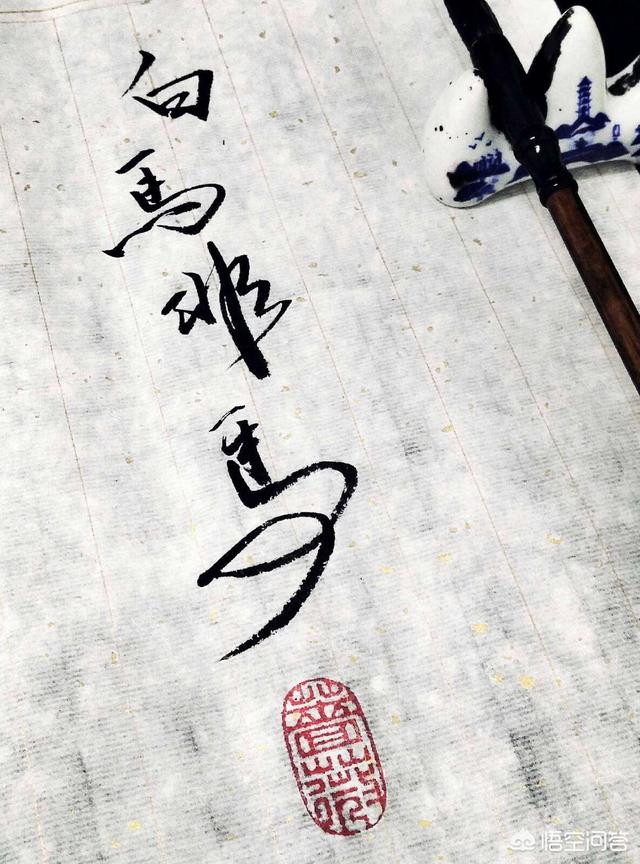 白馬非馬
悟空问答